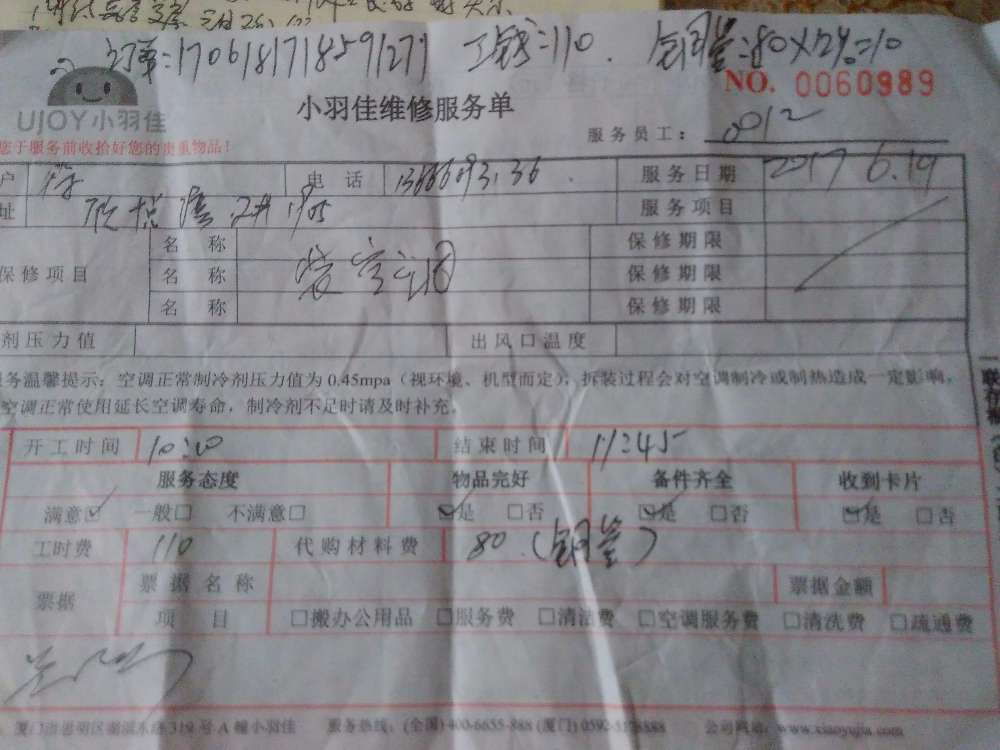 订单:170618171859127 工钱:110. 铜管:80×12%=10
NO. 0060989
UJOY小羽佳
小羽佳维修服务单
服务员工: 0012
您于服务前收拾好您的贵重物品!
户 电话 服务日期 2017 6.19
址 服务项目
保修项目 名称 保修期限
名称 装空调 保修期限
名称 保修期限
剂压力值 出风口温度
务温馨提示:空调正常制冷剂压力值为0.45mpa(视环境、机型而定);拆装过程会对空调制冷或制热造成一定影响,
空调正常使用延长空调寿命,制冷剂不足时请及时补充。
开工时间 结束时间 11:45
服务态度 物品完好 备件齐全 收到卡片
满意☑ 一般□ 不满意□ ☑是 □否 ☑是 □否 ☑是 □否
工时费 110 代购材料费 80.(铜管)
票据 票据名称 票据金额
项目 □搬办公用品 □服务费 □清洁费 □空调服务费 □清洗费 □疏通费
厦门市思明区 319号A幢小羽佳 服务热线:(全国)400-6655-888(厦门) 公司网站:www.xiaoyujia.com